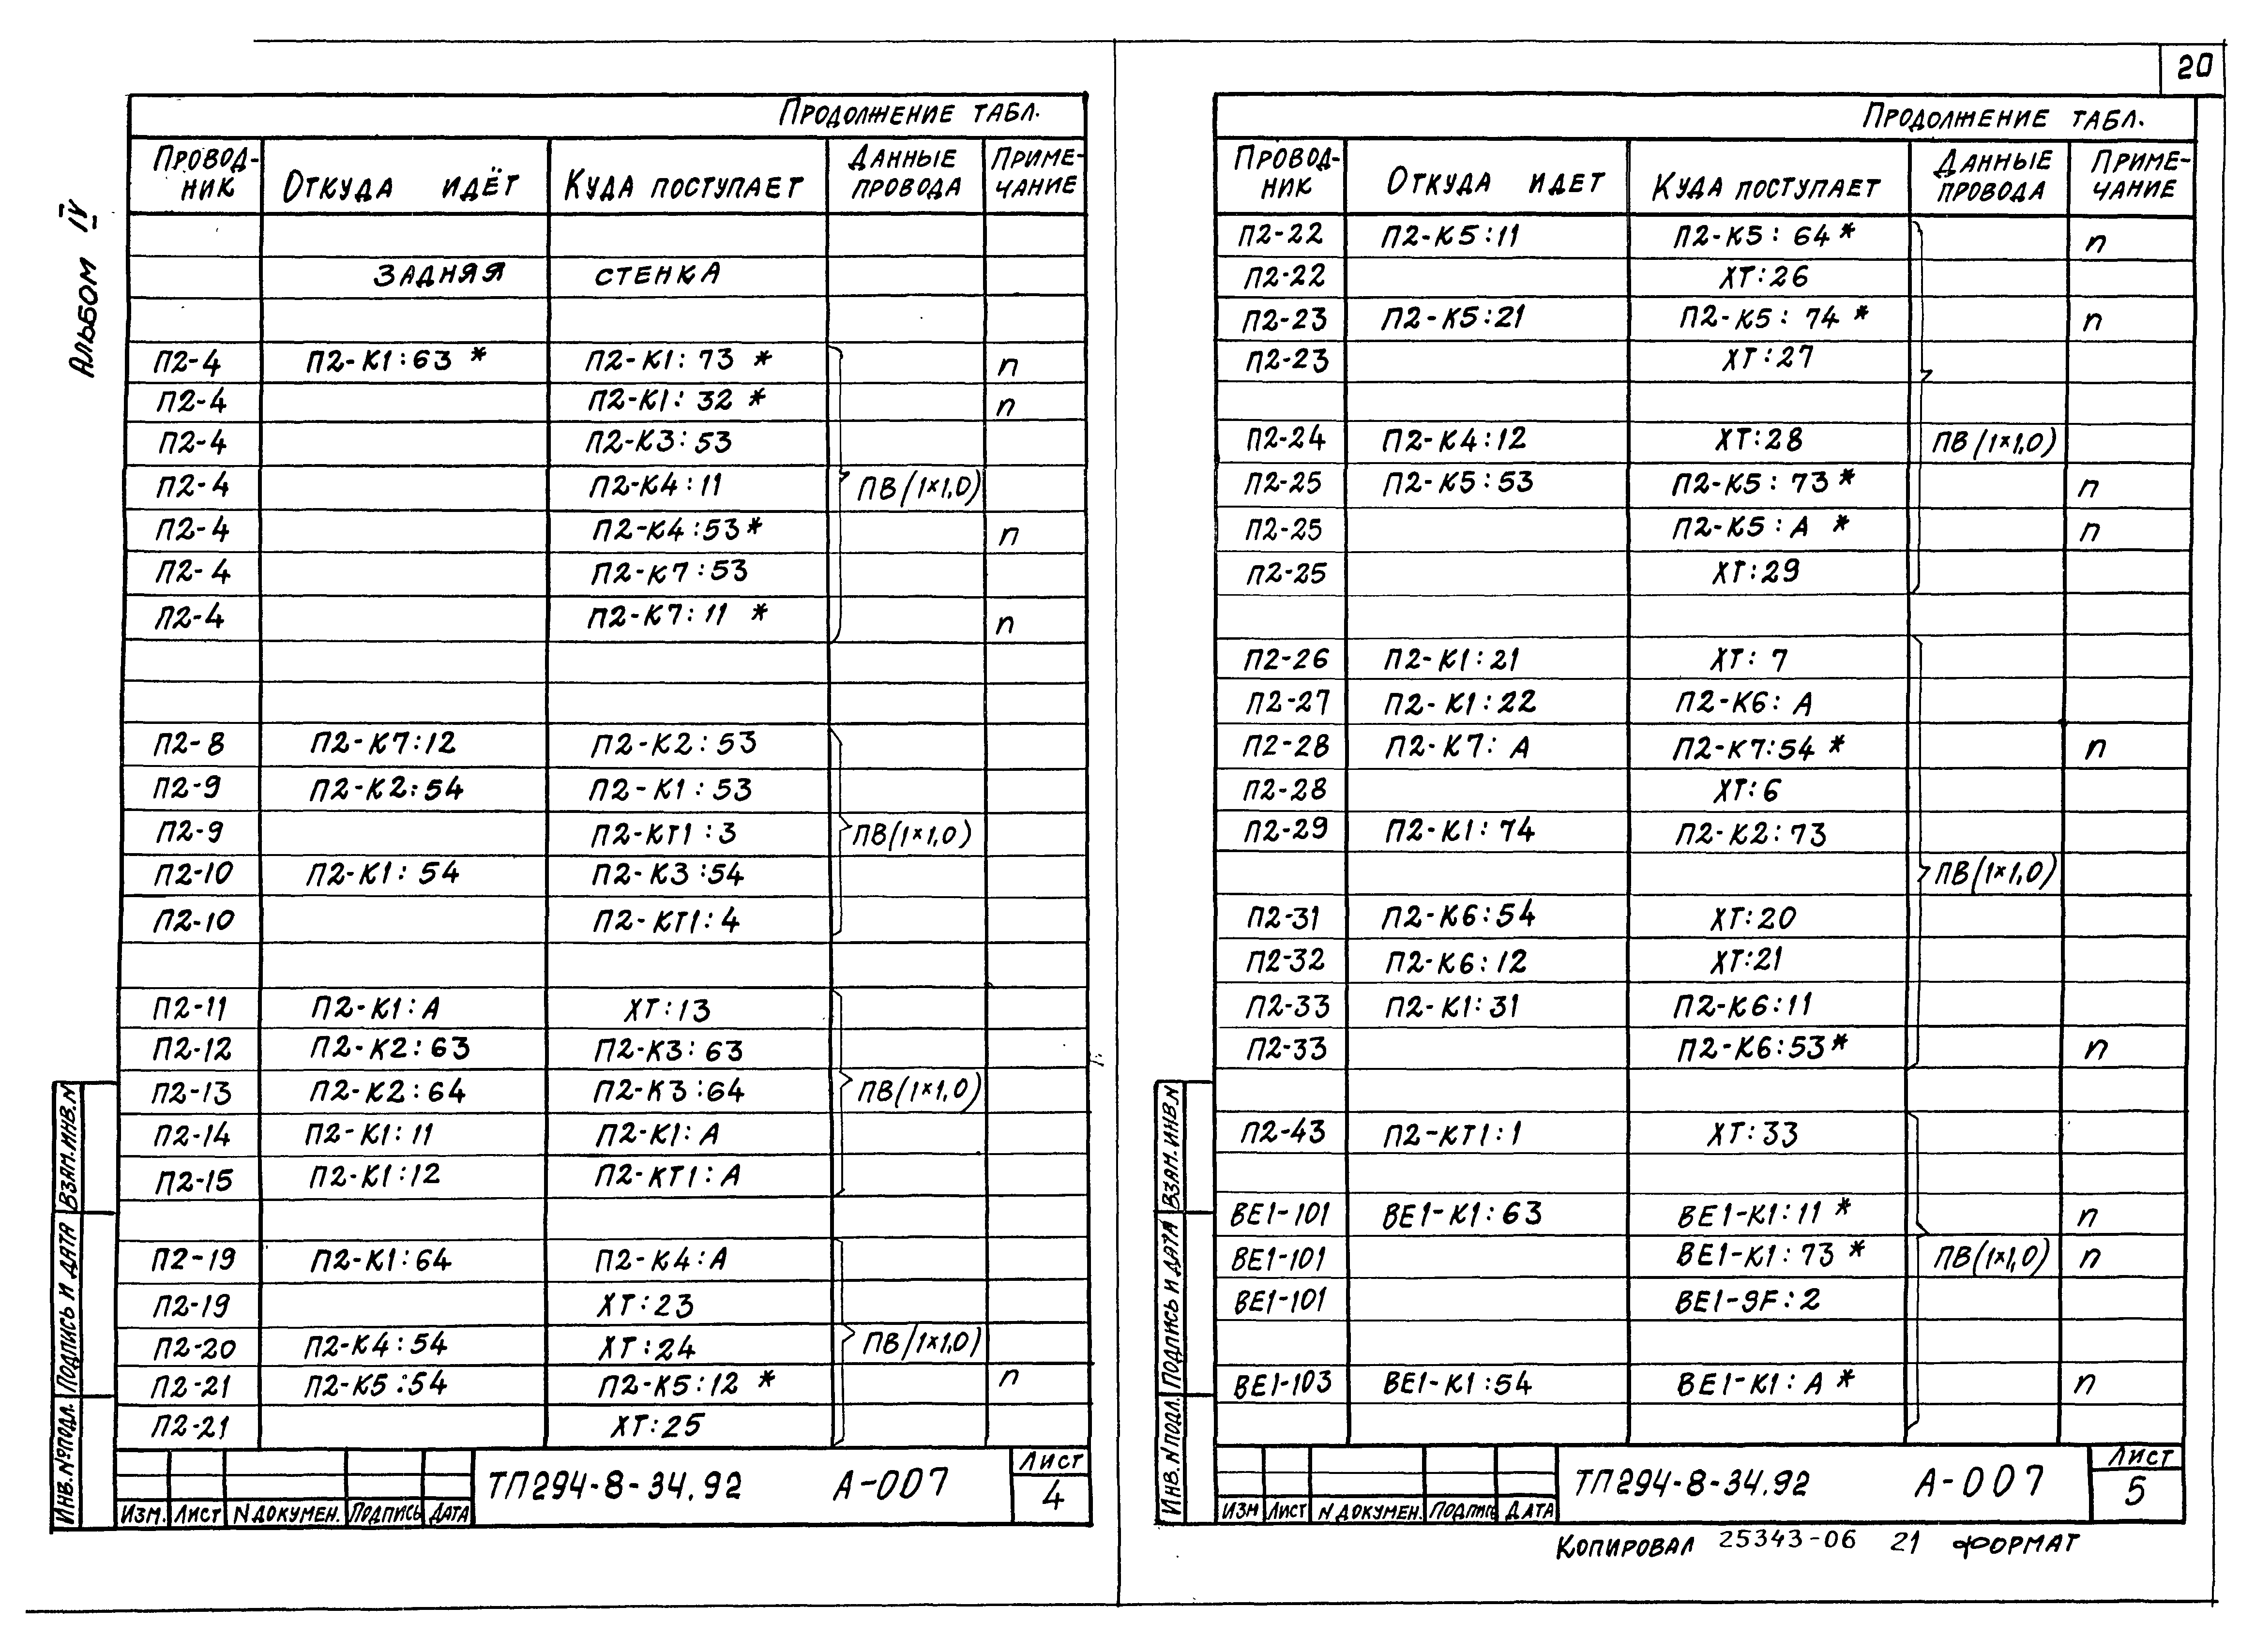 20
Альбом IV
Продолжение табл.
Провод-ник Откуда идёт Куда поступает Данные провода Приме-чание
Задняя стенка
П2-4 П2-К1:63 * П2-К1:73 * п
П2-4 П2-К1:32 * п
П2-4 П2-К3:53
П2-4 П2-К4:11 ПВ(1×1,0)
П2-4 П2-К4:53* п
П2-4 П2-К7:53
П2-4 П2-К7:11 * п
П2-8 П2-К7:12 П2-К2:53
П2-9 П2-К2:54 П2-К1:53
П2-9 П2-КТ1:3 ПВ(1×1,0)
П2-10 П2-К1:54 П2-К3:54
П2-10 П2-КТ1:4
П2-11 П2-К1:А ХТ:13
П2-12 П2-К2:63 П2-К3:63
П2-13 П2-К2:64 П2-К3:64 ПВ(1×1,0)
П2-14 П2-К1:11 П2-К1:А
П2-15 П2-К1:12 П2-КТ1:А
П2-19 П2-К1:64 П2-К4:А
П2-19 ХТ:23
П2-20 П2-К4:54 ХТ:24 ПВ(1×1,0)
П2-21 П2-К5:54 П2-К5:12 * п
П2-21 ХТ:25
Изм. Лист N докумен. Подпись Дата
ТП294-8-34.92 А-007
Лист
4
Инв.№подл. Подпись и дата Взам.инв.N
Продолжение табл.
Провод-ник Откуда идет Куда поступает Данные провода Приме-чание
П2-22 П2-К5:11 П2-К5:64 * п
П2-22 ХТ:26
П2-23 П2-К5:21 П2-К5:74 * п
П2-23 ХТ:27
П2-24 П2-К4:12 ХТ:28 ПВ(1×1,0)
П2-25 П2-К5:53 П2-К5:73 * п
П2-25 П2-К5:А * п
П2-25 ХТ:29
П2-26 П2-К1:21 ХТ:7
П2-27 П2-К1:22 П2-К6:А
П2-28 П2-К7:А П2-К7:54 * п
П2-28 ХТ:6
П2-29 П2-К1:74 П2-К2:73
ПВ(1×1,0)
П2-31 П2-К6:54 ХТ:20
П2-32 П2-К6:12 ХТ:21
П2-33 П2-К1:31 П2-К6:11
П2-33 П2-К6:53* п
П2-43 П2-КТ1:1 ХТ:33
ВЕ1-101 ВЕ1-К1:63 ВЕ1-К1:11 * п
ВЕ1-101 ВЕ1-К1:73 * ПВ(1×1,0) п
ВЕ1-101 ВЕ1-9F:2
ВЕ1-103 ВЕ1-К1:54 ВЕ1-К1:А * п
Изм Лист N докумен. Подпись Дата
ТП294-8-34.92 А-007
Лист
5
Инв.N подл. Подпись и дата Взам.инв.N
Копировал 25343-06 21 Формат